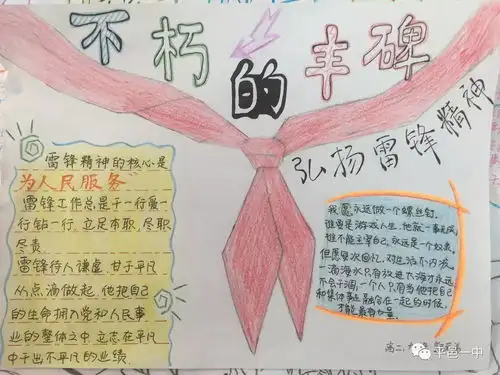 不朽的丰碑
弘扬雷锋精神
雷锋精神的核心是
为人民服务
雷锋工作总是干一行爱一
行钻一行,立足本职,尽职
尽责。
雷锋待人谦虚,甘于平凡
从点滴做起,他把自己
的生命拥入党和人民事
业的整体之中,立志在平凡
中干出不平凡的业绩.
我愿永远做一个螺丝钉.
谁要是游戏人生,他就一事无成,
谁不能主宰自己,永远是一个奴隶。
但愿每次回忆,对生活不内疚
一滴海水只有放进大海才永远
不会干涸,一个人只有当他把自己
和集体事业融合在一起的时候,
才能最有力量.
高二
平邑一中